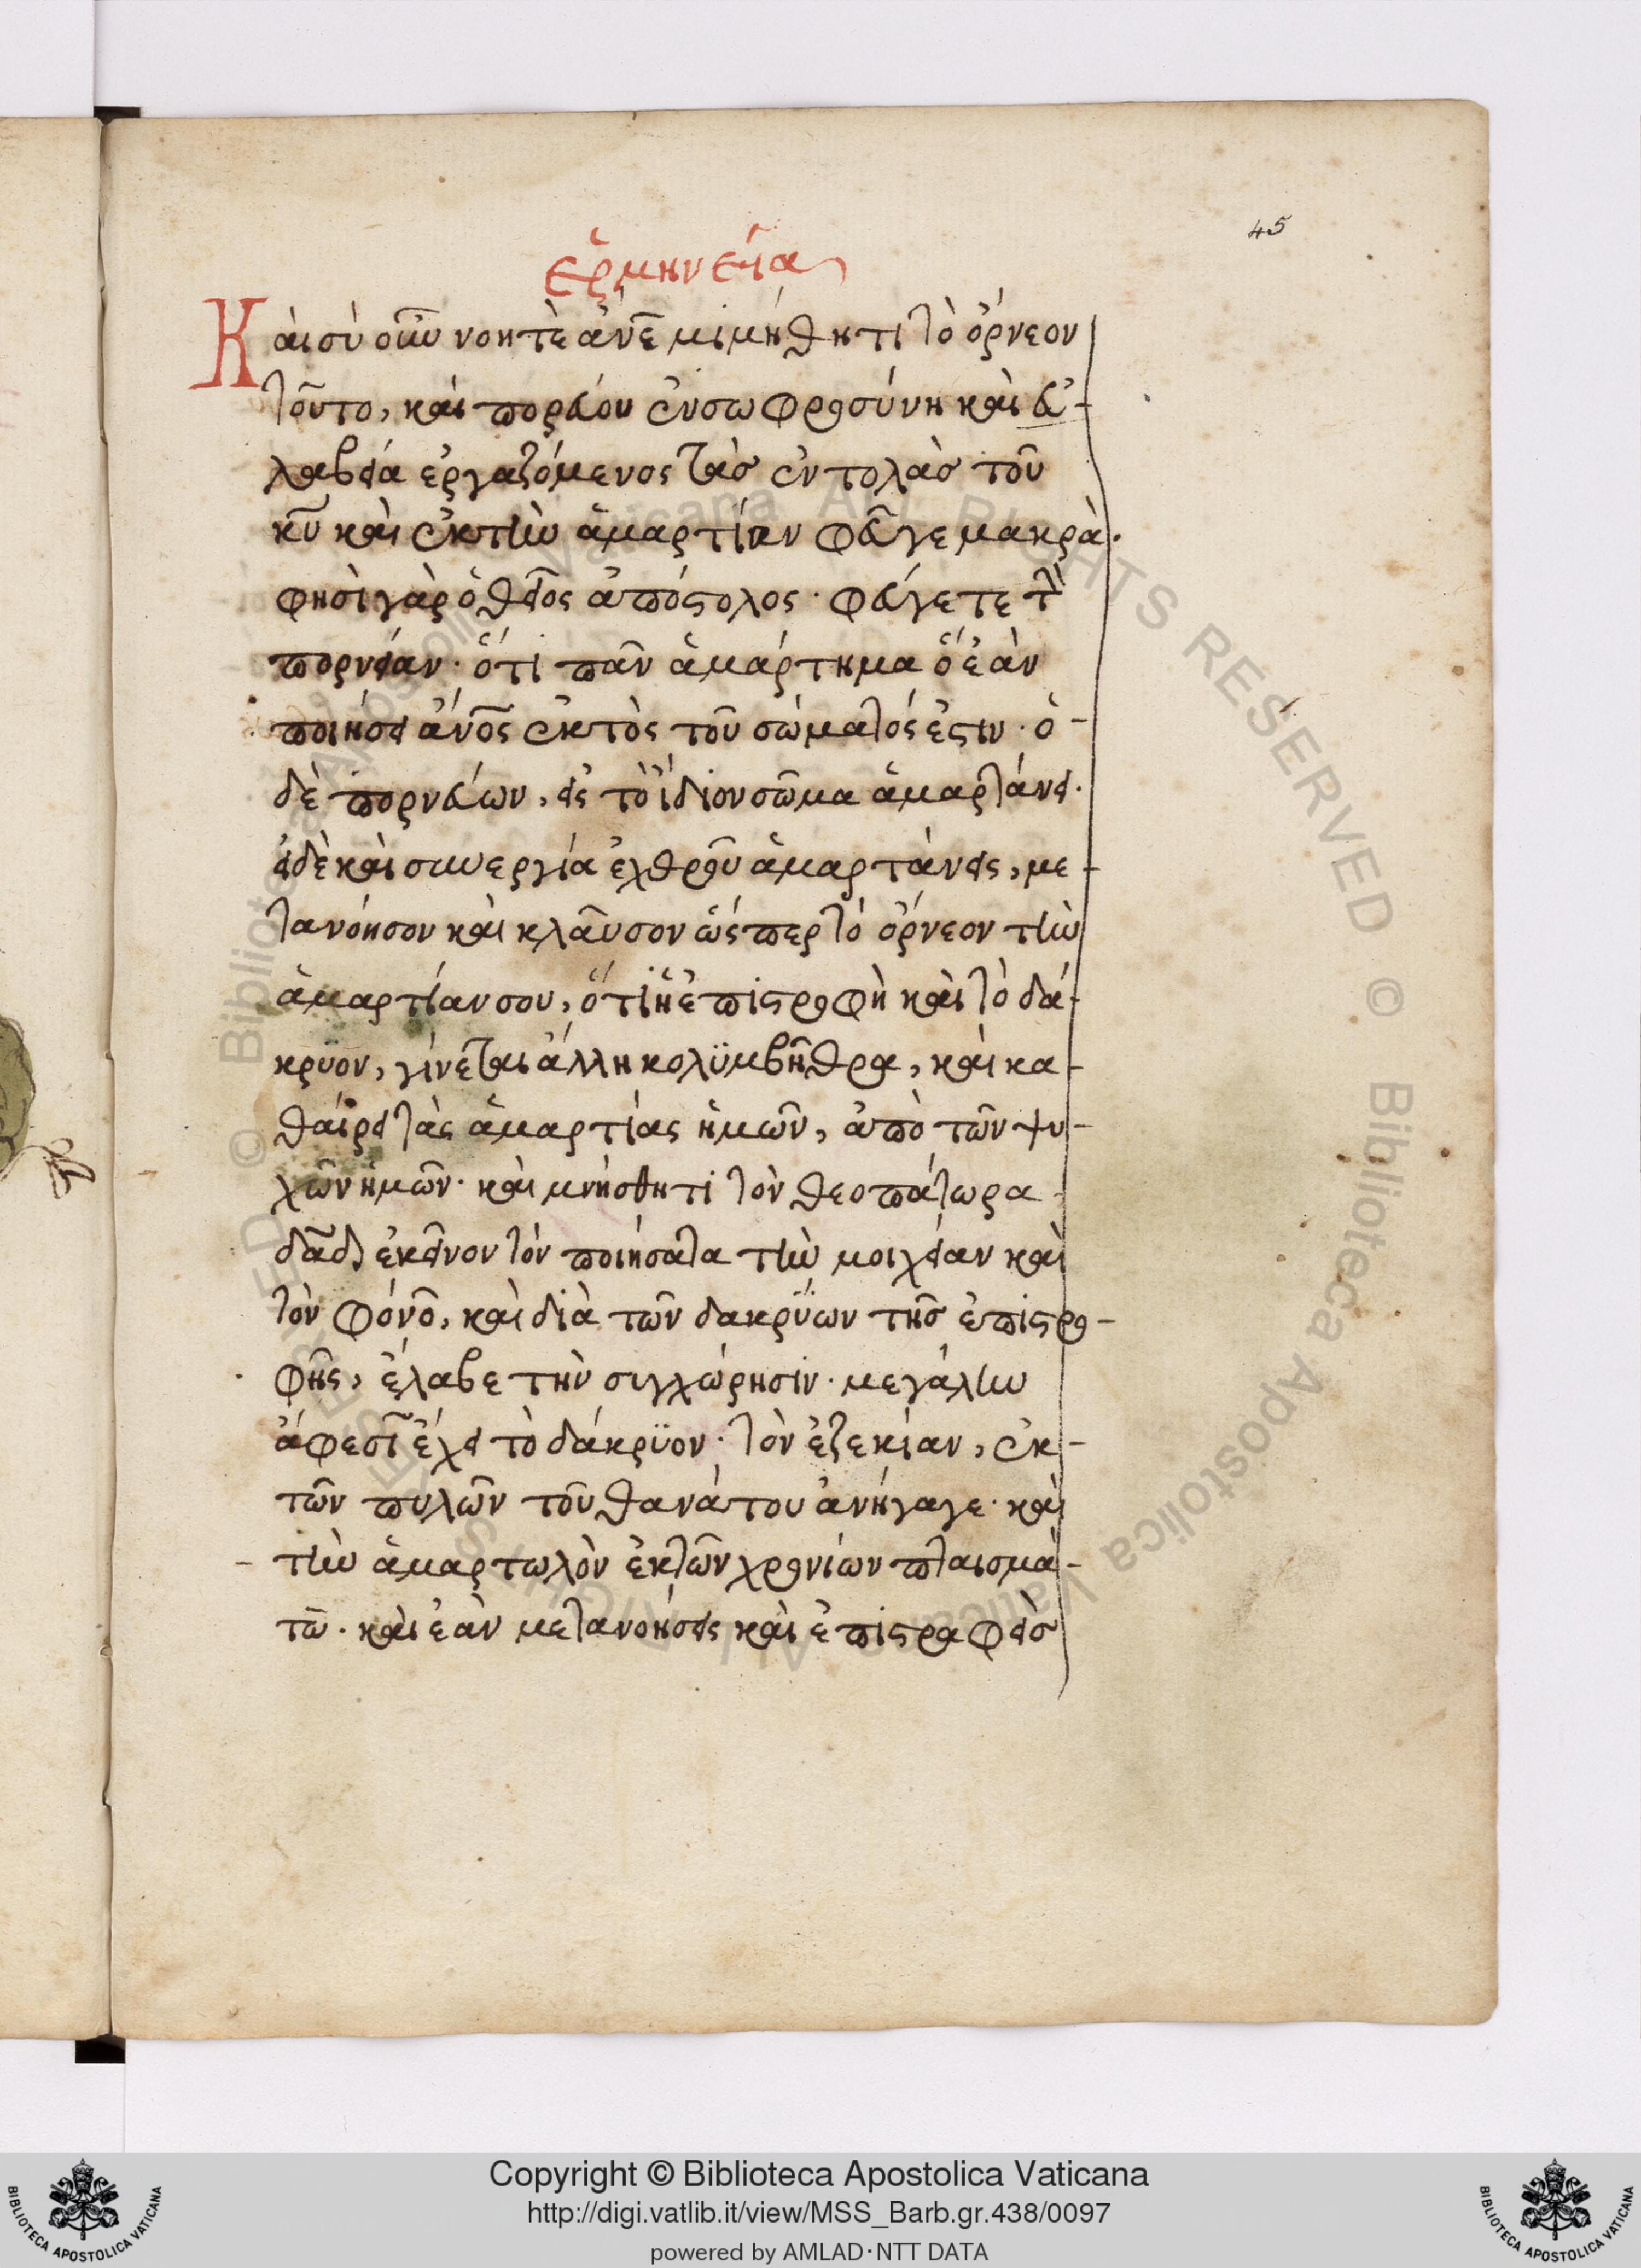 45
ἑρμηνεία
Καὶ σὺ οὖν νοητὲ ἄνε μιμήθητι τὸ ὄρνεον
τοῦτο, καὶ πορεύου ἐν σωφροσύνη καὶ εὐ-
λαβεία ἐργαζόμενος τὰσ ἐντολὰσ τοῦ
κυ καὶ ἐκ τὴν ἁμαρτίαν φεῦγε μακρὰ.
φησὶ γὰρ ὁ θεῖος ἀπόστολος · φεύγετε τὴ
πορνείαν · ὅτι πᾶν ἁμάρτημα ὅ ἐὰν
ποιήσει ἄνος ἐκτὸς τοῦ σώματός ἐστιν · ὁ-
δὲ πορνεύων, εἰς τὸ ἴδιον σῶμα ἁμαρτάνει.
εἰ δὲ καὶ συνεργία ἐχθροῦ ἁμαρτάνεις, με-
τανόησον καὶ κλαῦσον ὥσπερ τὸ ὄρνεον τὴν
ἁμαρτίαν σου, ὅτι ἡ ἐπιστροφὴ καὶ τὸ δά-
κρυον, γίνεται ἄλλη κολϋμβῆθρα, καὶ κα-
θαίρει τὰς ἁμαρτίας ἡμῶν, ἀπὸ τῶν ψυ-
χῶν ἡμῶν · καὶ μνήσθητι τὸν θεοπάτωρα
δαδ ἐκεῖνον τὸν ποιήσατα τὴν μοιχείαν καὶ
τὸν φόνο, καὶ διὰ τῶν δακρϋων τῆσ ἐπιστρο-
φῆς, ἔλαβε τὴν συγχώρησιν · μεγάλην
ἄφεσι ἔχει τὸ δάκρϋον · τὸν ἐζεκίαν, ἐκ-
τῶν πυλῶν τοῦ θανάτου ἀνήγαγε · καὶ
τὴν ἁμαρτωλὸν ἐκ τῶν χρονίων πταισμά-
τω · καὶ ἐὰν μετανοήσεις καὶ ἐπιστραφεὶσ
© Biblioteca Apostolica Vaticana ALL RIGHTS RESERVED
Copyright © Biblioteca Apostolica Vaticana
http://digi.vatlib.it/view/MSS_Barb.gr.438/0097
powered by AMLAD·NTT DATA
BIBLIOTECA APOSTOLICA VATICANA
BIBLIOTECA APOSTOLICA VATICANA